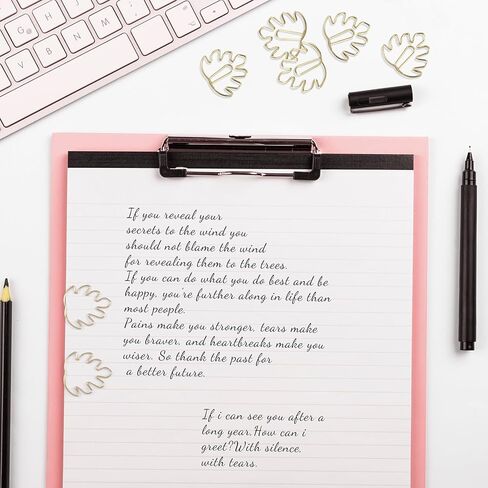 If you reveal your
secrets to the wind you
should not blame the wind
for revealing them to the trees.
If you can do what you do best and be
happy, you're further along in life than
most people.
Pains make you stronger, tears make
you braver, and heartbreaks make you
wiser. So thank the past for
a better future.
If i can see you after a
long year.How can i
greet?With silence,
with tears.